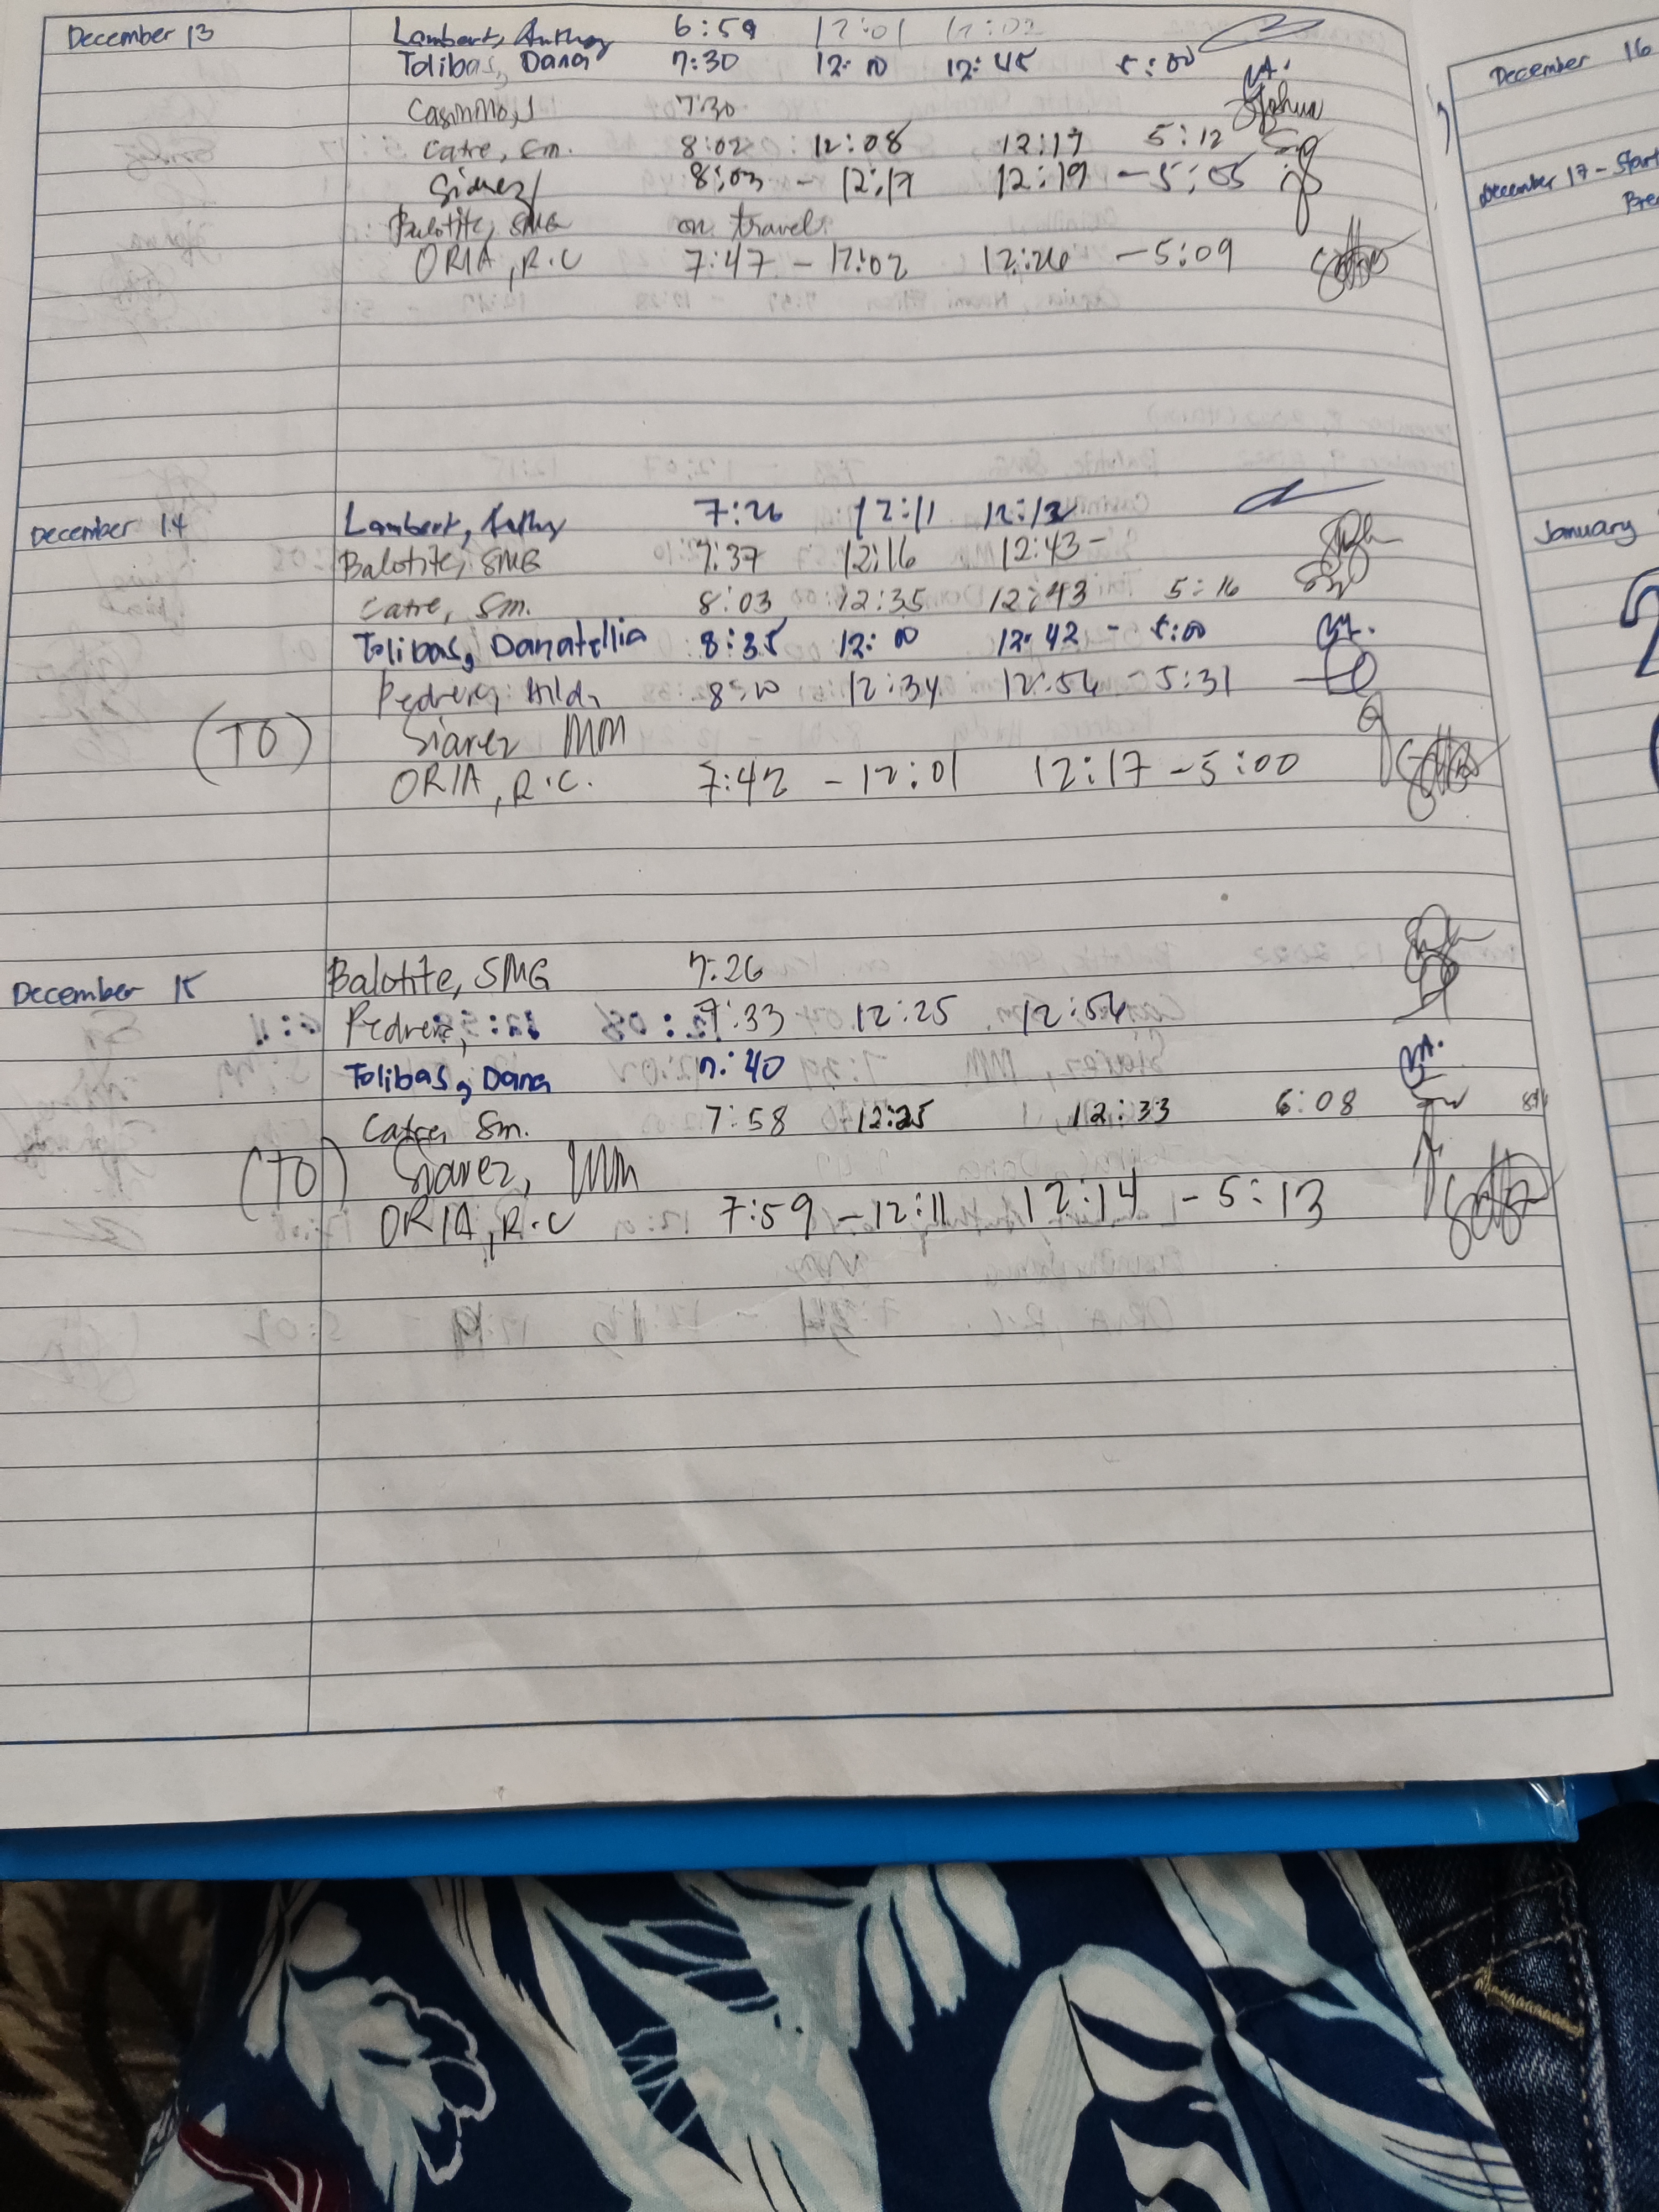 December 13 Lambert, Anthony 6:59 12:01 12:02
Tolibas, Dana 7:30 12:00 12:45 5:00
Casinillo, J 7:30 Joshua
Catre, Sm. 8:02 12:08 12:17 5:12
Siarez 8:03 - 12:17 12:19 - 5:05
Balotite, SMG on travel
ORIA, R.C 7:47 - 12:02 12:26 - 5:09
December 14 Lambert, Anthy 7:26 12:11 12:12
Balotite, SMG 7:37 12:16 12:43 -
Catre, Sm. 8:03 12:35 12:43 5:16
Tolibas, Danatellia 8:35 12:00 12:42 - 5:00
Pedrera, Hilda 8:10 12:34 12:56 - 5:31
(TO) Siarez MM
ORIA, R.C. 7:42 - 12:01 12:17 - 5:00
December 15 Balotite, SMG 7:26
Pedrera, 7:33 12:25 12:56
Tolibas, Dana 7:40
Catre, Sm. 7:58 12:25 12:33 6:08
(TO) Siarez, MM
ORIA, R.C 7:59 - 12:11 12:14 - 5:13
December 16
December 17 - Start
Bre
January